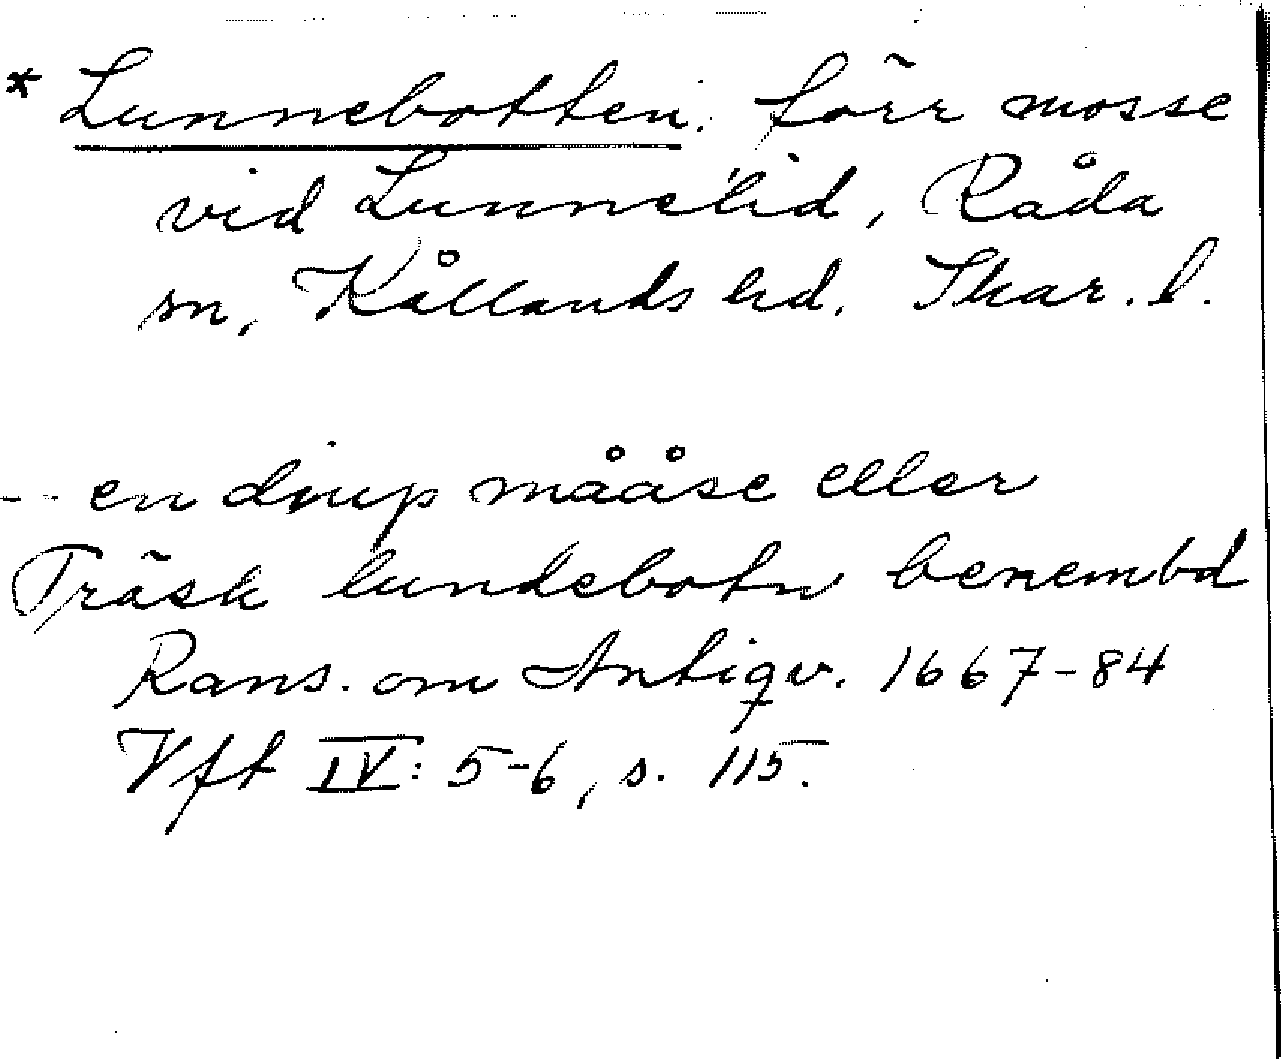 * Lunnebotten. förr mosse
vid Lunnelid, Råda
sn, Kållands hd. Skar. l.
-- en diup mååse eller
Träsk lundebotn benembd
Rans. om Antiqv. 1667-84
Vft IV: 5-6, s. 115.